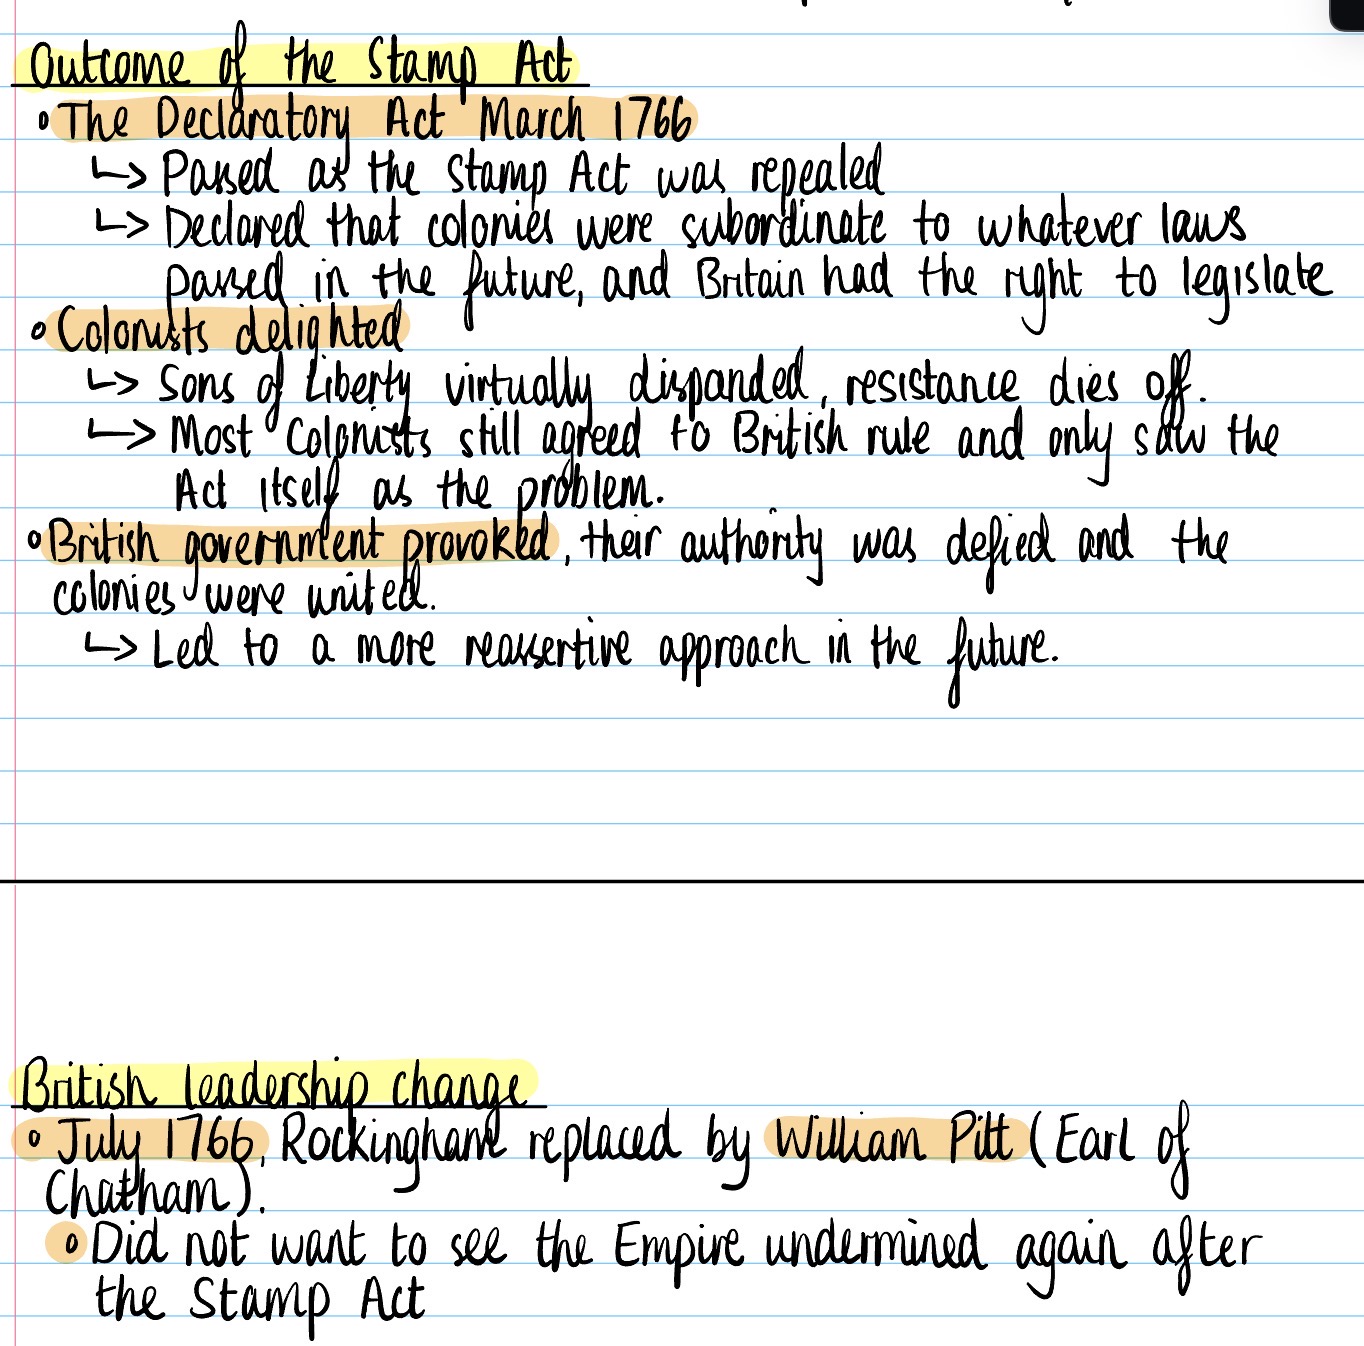 Outcome of the Stamp Act
• The Declaratory Act March 1766
↳ Passed as the Stamp Act was repealed
↳ Declared that colonies were subordinate to whatever laws
passed in the future, and Britain had the right to legislate
• Colonists delighted
↳ Sons of Liberty virtually dispanded, resistance dies off.
↳ Most Colonists still agreed to British rule and only saw the
Act itself as the problem.
• British government provoked, their authority was defied and the
colonies were united.
↳ Led to a more reassertive approach in the future.
British leadership change
• July 1766, Rockingham replaced by William Pitt (Earl of
Chatham).
• Did not want to see the Empire undermined again after
the Stamp Act